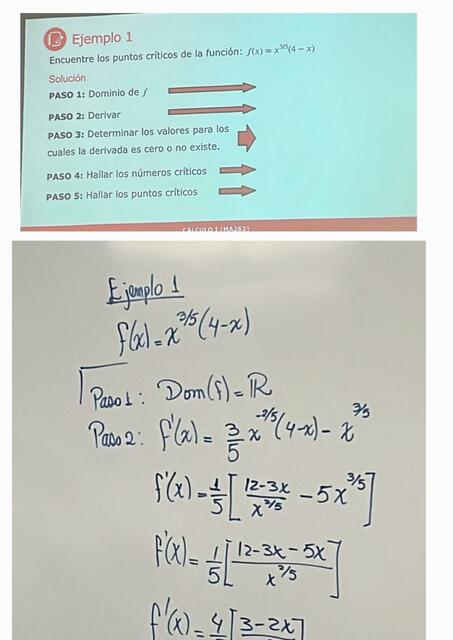 Ejemplo 1
Encuentre los puntos críticos de la función: f(x) = x^{3/5}(4 − x)
Solución
PASO 1: Dominio de f
PASO 2: Derivar
PASO 3: Determinar los valores para los
cuales la derivada es cero o no existe.
PASO 4: Hallar los números críticos
PASO 5: Hallar los puntos críticos
CÁLCULO I (MA262)
Ejemplo 1
f(x) = x^{3/5}(4-x)
Paso 1: Dom(f) = ℝ
Paso 2: f'(x) = 3/5 x^{-2/5}(4-x) - x^{3/5}
f'(x) = 1/5 [ (12-3x)/x^{2/5} - 5x^{3/5} ]
f'(x) = 1/5 [ (12-3x-5x)/x^{2/5} ]
f'(x) = 4 [ 3-2x ]